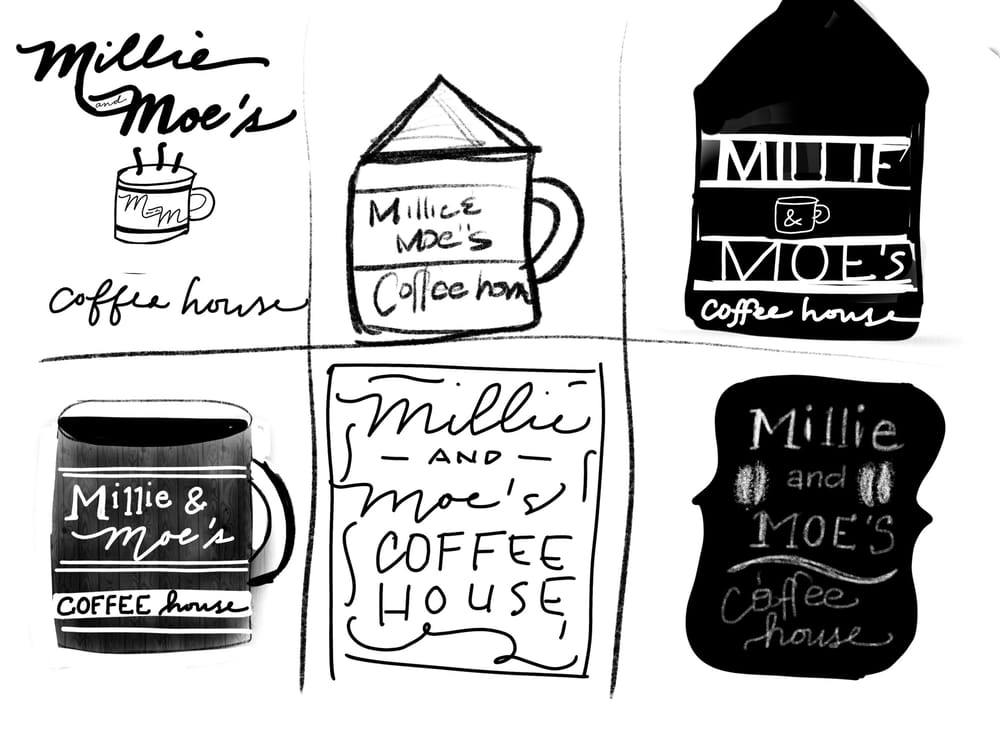 Millie
and
Moe's
M&M
Coffee house
Millie &
Moe's
Coffee hom
MILLIE
&
MOE'S
Coffee house
Millie &
Moe's
COFFEE house
Millie
— AND —
Moe's
COFFEE
HOUSE
Millie
and
MOE'S
Coffee
house